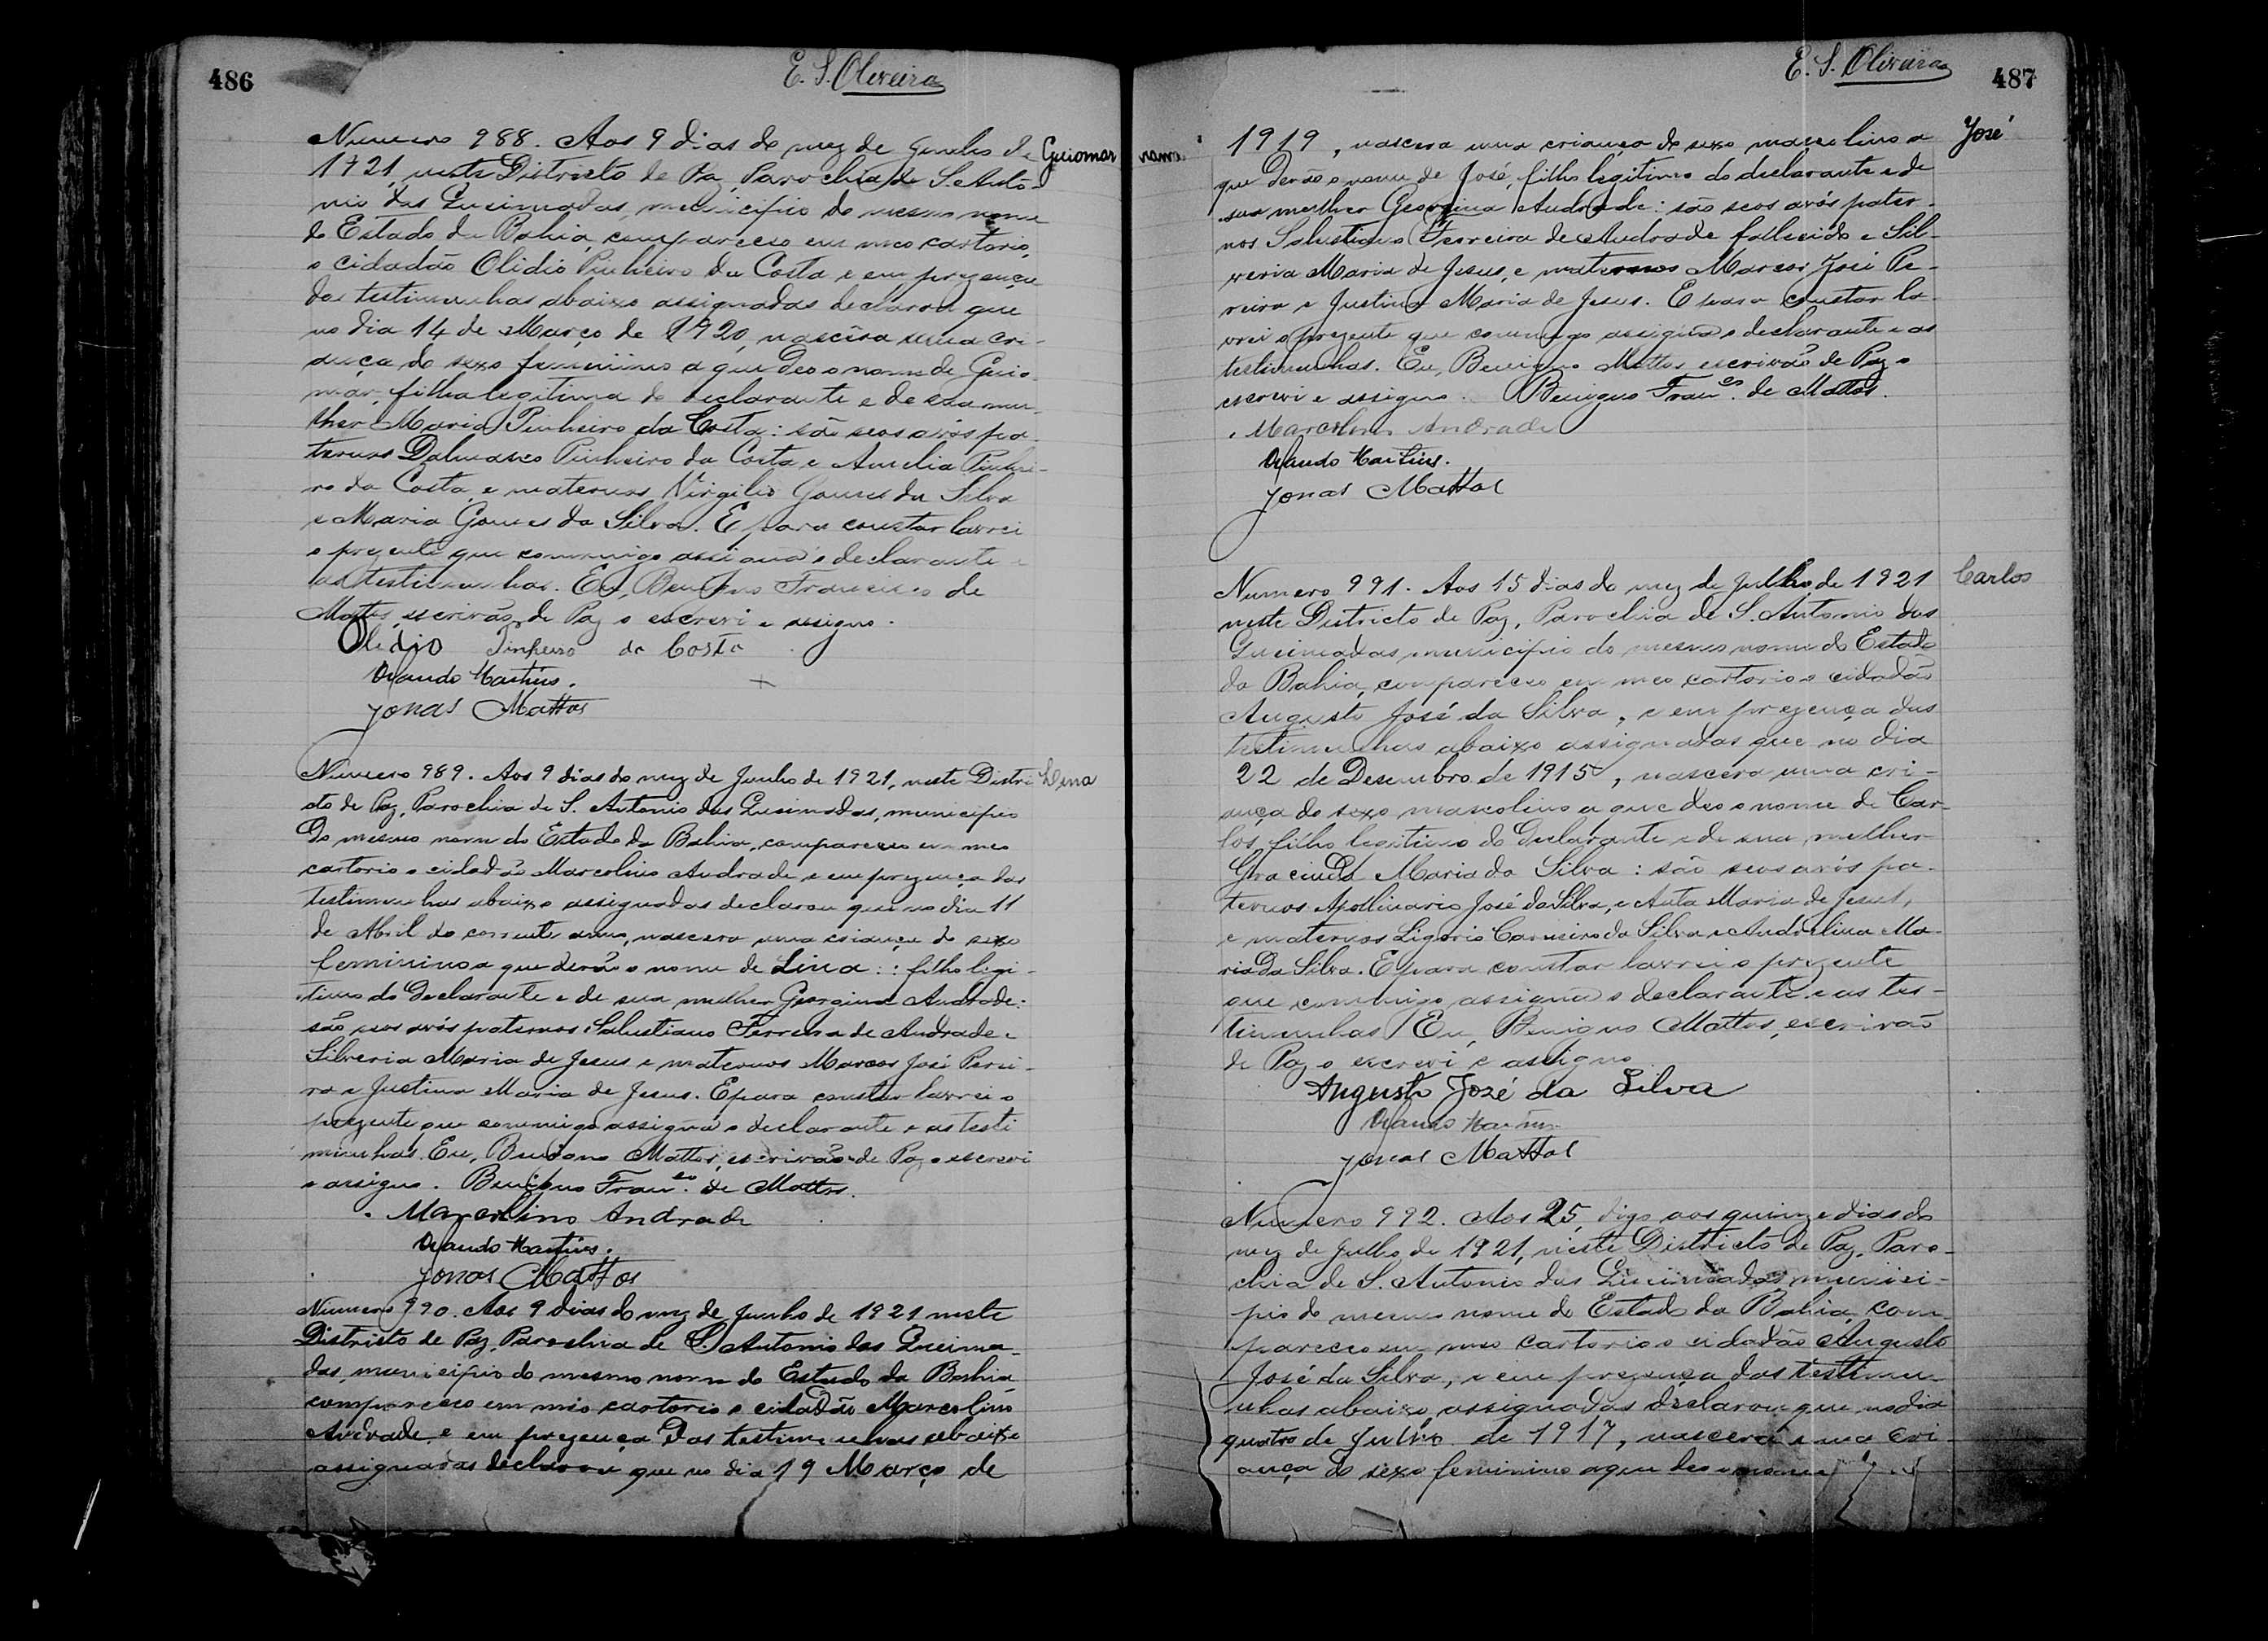 486
E. S. Oliveira
Numero 988. Aos 9 dias do mez de Junho de Guiomar
1921, neste Districto de Paz, Parochia de S. Anto-
nio das Queimadas, municipio do mesmo nome
do Estado da Bahia, compareceo em meo cartorio,
o cidadão Olidio Pinheiro da Costa e em prezença
das testimunhas abaixo assignadas declarou que
no dia 14 de Março de 1920, nascêra uma cri-
ança do sexo feminino a que deo o nome de Guio-
már, filha legitima do declarante e de sua mu-
lher Maria Pinheiro da Costa: são seos avós pa-
ternos Pinheiro da Costa e Amelia Pinhei-
ro da Costa, e maternos Virgilio Gomes da Silva
e Maria Gomes da Silva. E para constar lavrei
o prezente que commigo assigna o declarante e
as testimunhas. Eu, Benigno Francisco de
Mattos, escrivão de Paz o escrevi e assigno.
Olidio Pinheiro da Costa
Orlando Martins.
Jonas Mattos
Numero 989. Aos 9 dias do mez de Junho de 1921, neste Distri-
cto de Paz, Parochia de S. Antonio das Queimadas, municipio
do mesmo nome do Estado da Bahia, compareceo em meo
cartorio o cidadão Marcolino Andrade e em prezença das
testimunhas abaixo assignadas declarou que no dia 11
de Abril do corrente anno, nascera uma criança do sexo
feminino a que derão o nome de Lina:: filho legi-
timo do declarante e de sua mulher Georgina Andrade:
são seos avós paternos Salustiano Ferreira de Andrade e
Silveria Maria de Jesus e maternos Marcos José Perei-
ra e Justina Maria de Jesus. E para constar lavrei o
prezente que commigo assigna o declarante e as testi
munhas. Eu, Benigno Mattos, escrivão de Paz o escrevi
e assigno. Benigno Franco. de Mattos.
Marcolino Andrade
Orlando Martins.
Jonas Mattos
Numero 990. Aos 9 dias do mez de Junho de 1921 neste
Districto de Paz, Parochia de S. Antonio das Queima-
das, municipio do mesmo nome do Estado da Bahia,
compareceo em meo cartorio o cidadão Marcolino
Andrade, e em prezença das testimunhas abaixo
assignadas declarou que no dia 19 Março de
E. S. Oliveira
487
1919, nascera uma criança do sexo masculino a José
que derão o nome de José, filho legitimo do declarante e de
sua mulher Georgina Andrade: são seos avós pater-
nos Salustiano Ferreira de Andrade fallecido e Sil-
veria Maria de Jesus, e maternos Marcos José Pe-
reira e Justina Maria de Jesus. E para constar la-
vrei o prezente que commigo assigna o declarante e as
testimunhas. Eu, Benigno Mattos escrivão de Paz o
escrevi e assigno. Benigno Franco. de Mattos.
Marcolino Andrade
Orlando Martins.
Jonas Mattos
Numero 991. Aos 15 dias do mez de Julho de 1921 Carlos
neste Districto de Paz, Parochia de S. Antonio das
Queimadas municipio do mesmo nome do Estado
da Bahia, compareceo em meo cartorio o cidadão
Augusto José da Silva, e em prezença das
testimunhas abaixo assignadas que no dia
22 de Desembro de 1915, nascera uma cri-
ança do sexo mascolino a que deo o nome de Car-
los, filho legitimo do declarante e de sua mulher
Gracinda Maria da Silva: são seos avós pa-
ternos Apollinario José da Silva, e Auta Maria de Jesus,
e maternos Ligorio Carneiro da Silva e Andrelina Ma-
ria da Silva. E para constar lavrei o prezente
que commigo assigna o declarante e as tes-
timunhas Eu, Benigno Mattos, escrivão
de Paz o escrevi e assigno
Augusto José da Silva
Orlando Martins
Jonas Mattos
Numero 992. Aos 25, digo aos quinze dias do
mez de Julho de 1921, neste Districto de Paz, Paro-
chia de S. Antonio das Queimadas, munici-
pio do mesmo nome do Estado da Bahia, com-
pareceo em meo cartorio o cidadão Augusto
José da Silva, e em prezença das testimu-
nhas abaixo assignadas declarou que no dia
quatro de Julho de 1917, nascera uma cri-
ança do sexo feminino a que deo o nome